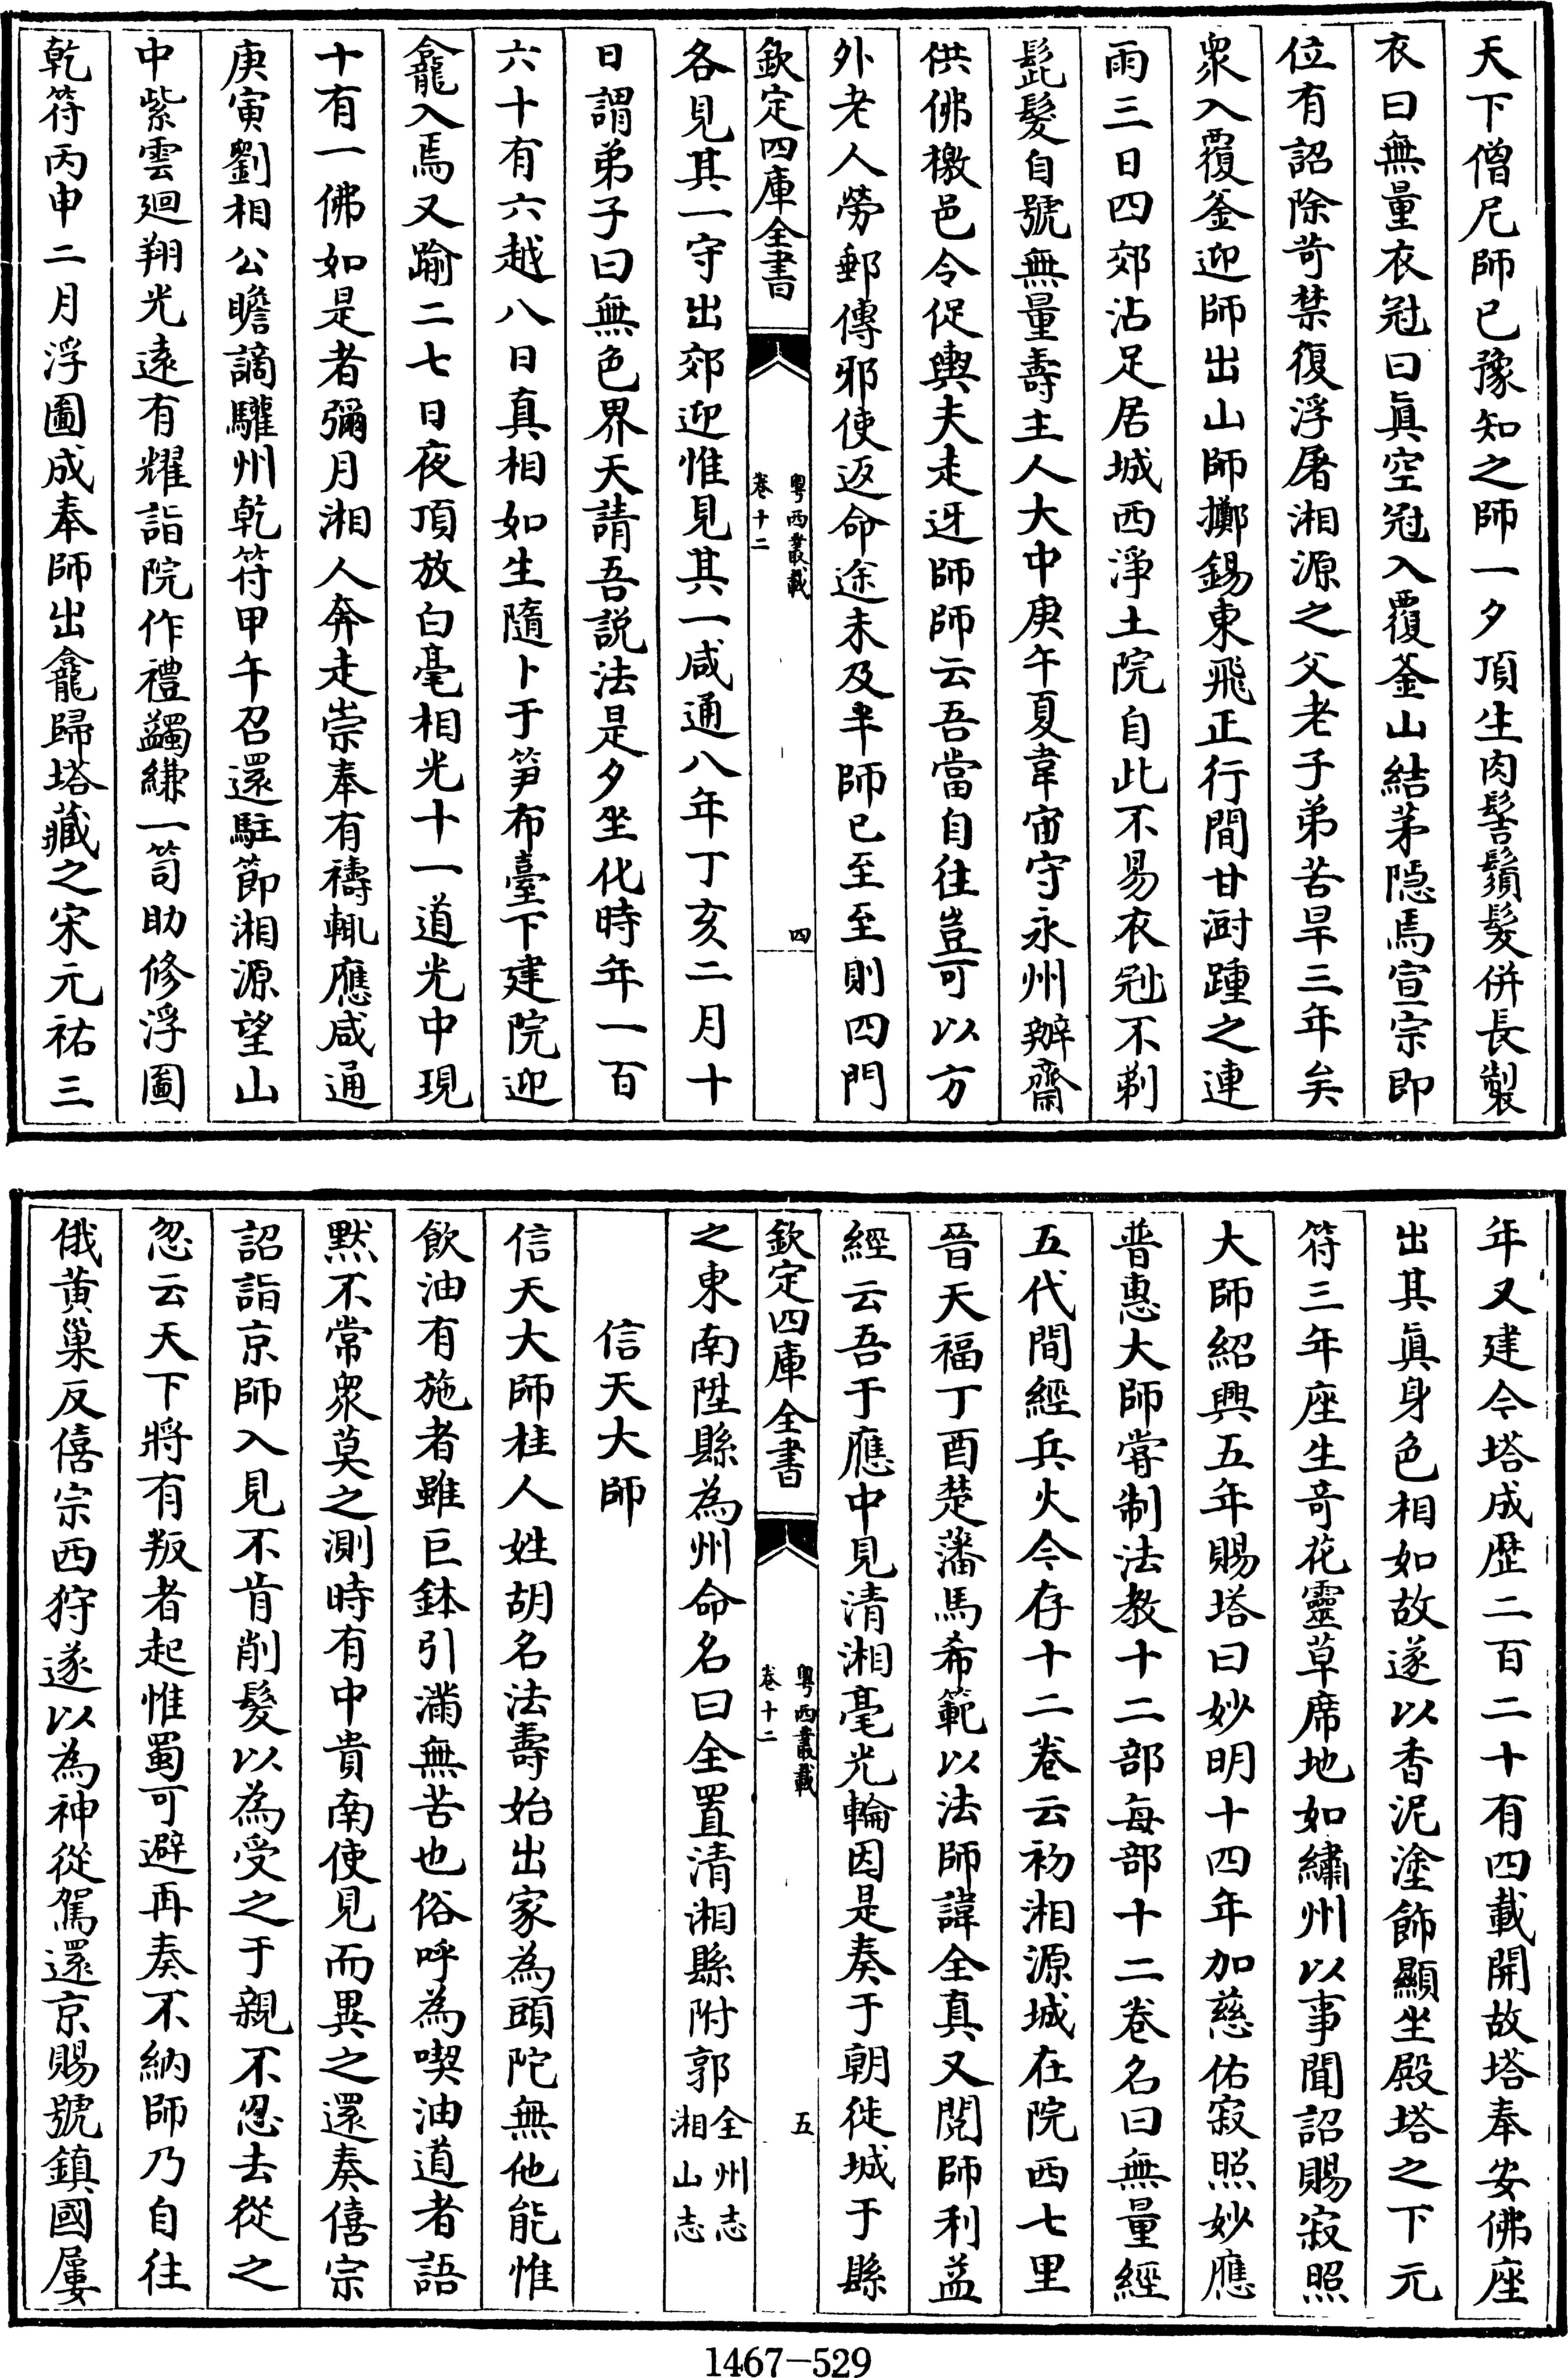 天下僧尼師已豫知之師一夕頂生肉髻鬚髮併長製
衣曰無量衣冠曰眞空冠入覆釜山結茅隱焉宣宗即
位有詔除苛禁復浮屠湘源之父老子弟苦旱三年矣
衆入覆釜迎師出山師擲錫東飛正行間甘澍踵之連
雨三日四郊沾足居城西淨土院自此不易衣冠不剃
髭髮自號無量壽主人大中庚午夏韋宙守永州辦齋
供佛檄邑令促輿夫走迓師師云吾當自往豈可以方
外老人勞郵傳邪使返命途未及半師已至至則四門
欽定四庫全書
粵西叢載
卷十二
四
各見其一守出郊迎惟見其一咸通八年丁亥二月十
日謂弟子曰無色界天請吾説法是夕坐化時年一百
六十有六越八日真相如生隨卜于笋布臺下建院迎
龕入焉又踰二七日夜頂放白毫相光十一道光中現
十有一佛如是者彌月湘人奔走崇奉有禱輒應咸通
庚寅劉相公瞻謫驩州乾符甲午召還駐節湘源望山
中紫雲廻翔光遠有耀詣院作禮蠲縑一笥助修浮圖
乾符丙申二月浮圖成奉師出龕歸塔藏之宋元祐三
年又建今塔成歴二百二十有四載開故塔奉安佛座
出其眞身色相如故遂以香泥塗飾顯坐殿塔之下元
符三年座生奇花靈草席地如繡州以事聞詔賜寂照
大師紹興五年賜塔曰妙明十四年加慈佑寂照妙應
普惠大師嘗制法教十二部每部十二卷名曰無量經
五代間經兵火今存十二卷云初湘源城在院西七里
晉天福丁酉楚藩馬希範以法師諱全真又閱師利益
經云吾于應中見清湘毫光輪因是奏于朝徙城于縣
欽定四庫全書
粵西叢載
卷十二
五
之東南陞縣為州命名曰全置清湘縣附郭全州志
湘山志
信天大師
信天大師桂人姓胡名法壽始出家為頭陀無他能惟
飲油有施者雖巨鉢引滿無苦也俗呼為喫油道者語
默不常衆莫之測時有中貴南使見而異之還奏僖宗
詔詣京師入見不肯削髮以為受之于親不忍去從之
忽云天下將有叛者起惟蜀可避再奏不納師乃自往
俄黄巢反僖宗西狩遂以為神從駕還京賜號鎮國屢
1467-529